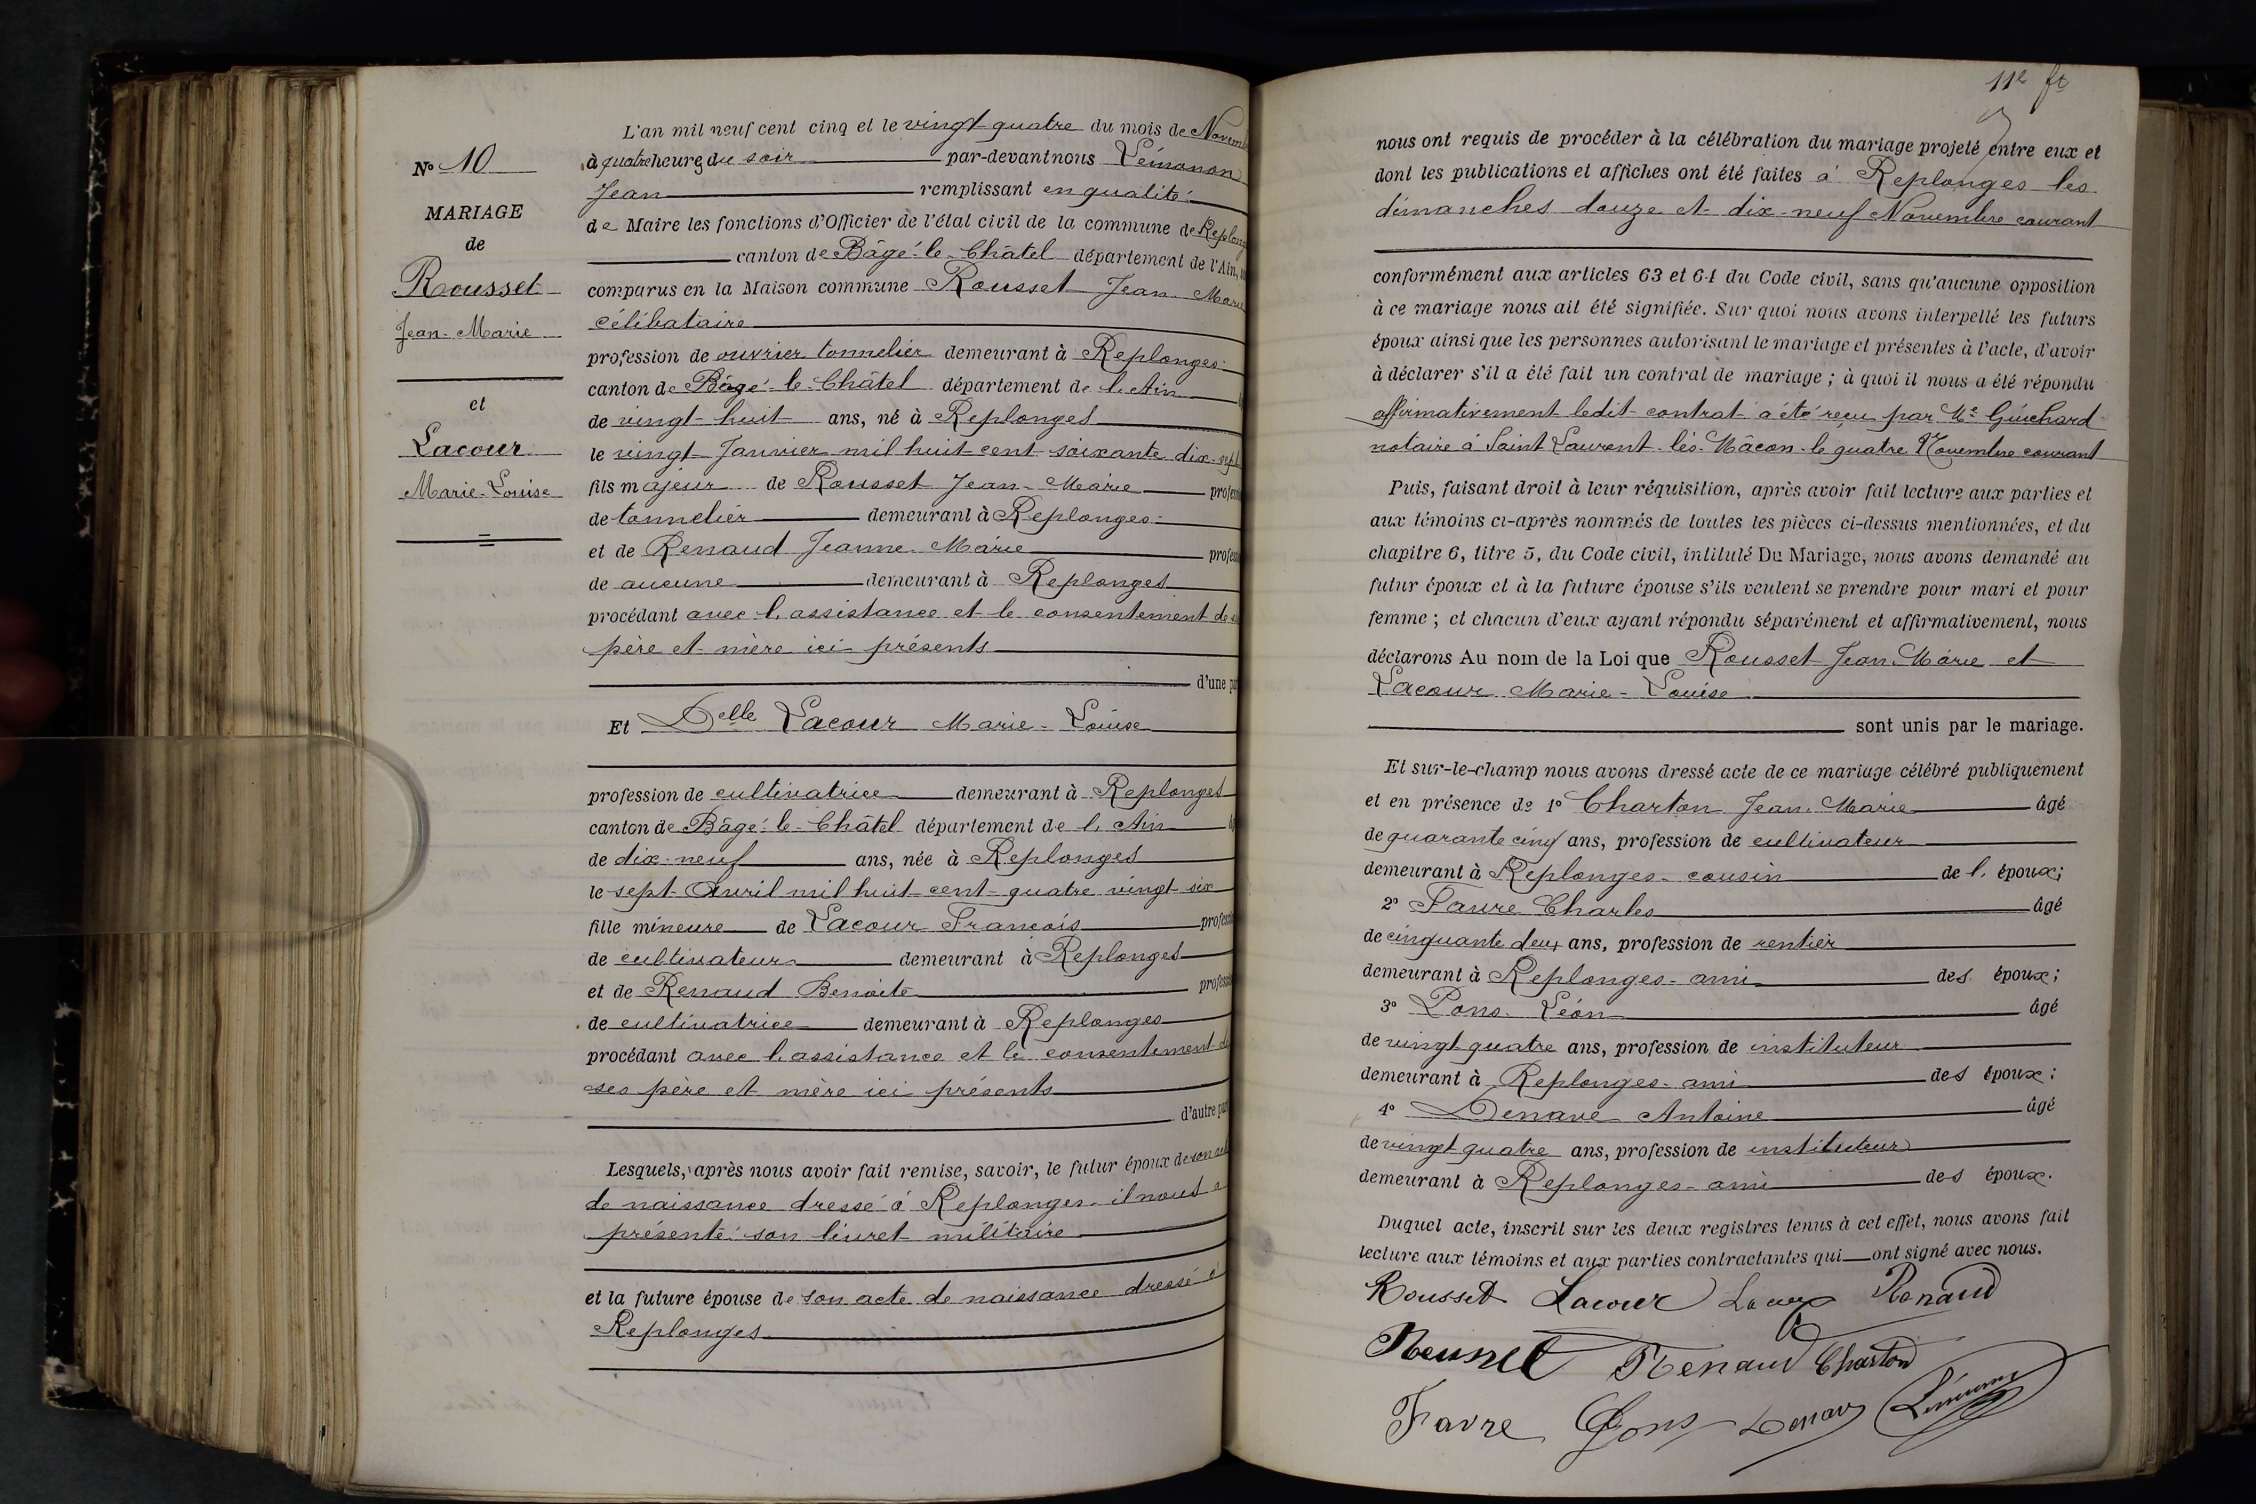 No 10
MARIAGE
de
Rousset
Jean-Marie
et
Lacour
Marie-Louise
L'an mil neuf cent cinq et le vingt quatre du mois de Novem
à quatre heures du soir par-devant nous Lémonon
Jean remplissant en qualité
de Maire les fonctions d'Officier de l'état civil de la commune de Replong
canton de Bâgé-le-Châtel département de l'Ain,
comparus en la Maison commune Rousset Jean-Marie
célibataire
profession de ouvrier tonnelier demeurant à Replonges
canton de Bâgé-le-Châtel département de l'Ain
de vingt-huit ans, né à Replonges
le vingt Janvier mil huit cent soixante dix-sept
fils majeur de Rousset Jean-Marie profess
de tonnelier demeurant à Replonges
et de Renaud Jeanne-Marie profess
de aucune demeurant à Replonges
procédant avec l'assistance et le consentement de s
père et mère ici présents
d'une par
Et Delle Lacour Marie-Louise
profession de cultivatrice demeurant à Replonges
canton de Bâgé-le-Châtel département de l'Ain
de dix-neuf ans, née à Replonges
le sept Avril mil huit cent quatre vingt six
fille mineure de Lacour François profess
de cultivateur demeurant à Replonges
et de Renaud Benoite profess
de cultivatrice demeurant à Replonges
procédant avec l'assistance et le consentement de
ses père et mère ici présents
d'autre part
Lesquels, après nous avoir fait remise, savoir, le futur époux de son acte
de naissance dressé à Replonges il nous a
présenté son livret militaire
et la future épouse de son acte de naissance dressé à
Replonges
112 ft
nous ont requis de procéder à la célébration du mariage projeté entre eux et
dont les publications et affiches ont été faites à Replonges les
dimanches douze et dix-neuf Novembre courant
conformément aux articles 63 et 64 du Code civil, sans qu'aucune opposition
à ce mariage nous ait été signifiée. Sur quoi nous avons interpellé les futurs
époux ainsi que les personnes autorisant le mariage et présentes à l'acte, d'avoir
à déclarer s'il a été fait un contrat de mariage ; à quoi il nous a été répondu
affirmativement ledit contrat a été reçu par Me Guichard
notaire à Saint Laurent-lès-Mâcon le quatre Novembre courant
Puis, faisant droit à leur réquisition, après avoir fait lecture aux parties et
aux témoins ci-après nommés de toutes les pièces ci-dessus mentionnées, et du
chapitre 6, titre 5, du Code civil, intitulé Du Mariage, nous avons demandé au
futur époux et à la future épouse s'ils veulent se prendre pour mari et pour
femme ; et chacun d'eux ayant répondu séparément et affirmativement, nous
déclarons Au nom de la Loi que Rousset Jean-Marie et
Lacour Marie-Louise
sont unis par le mariage.
Et sur-le-champ nous avons dressé acte de ce mariage célébré publiquement
et en présence de 1o Charton Jean-Marie âgé
de quarante cinq ans, profession de cultivateur
demeurant à Replonges - cousin de l'époux;
2o Favre Charles âgé
de cinquante deux ans, profession de rentier
demeurant à Replonges - ami des époux;
3o Pons Léon âgé
de vingt quatre ans, profession de instituteur
demeurant à Replonges - ami des époux;
4o Denave Antoine âgé
de vingt quatre ans, profession de instituteur
demeurant à Replonges - ami des époux.
Duquel acte, inscrit sur les deux registres tenus à cet effet, nous avons fait
lecture aux témoins et aux parties contractantes qui ont signé avec nous.
Rousset Lacour Lacour Renaud
Rousset Renaud Charton
Favre Pons Denave Lémonon